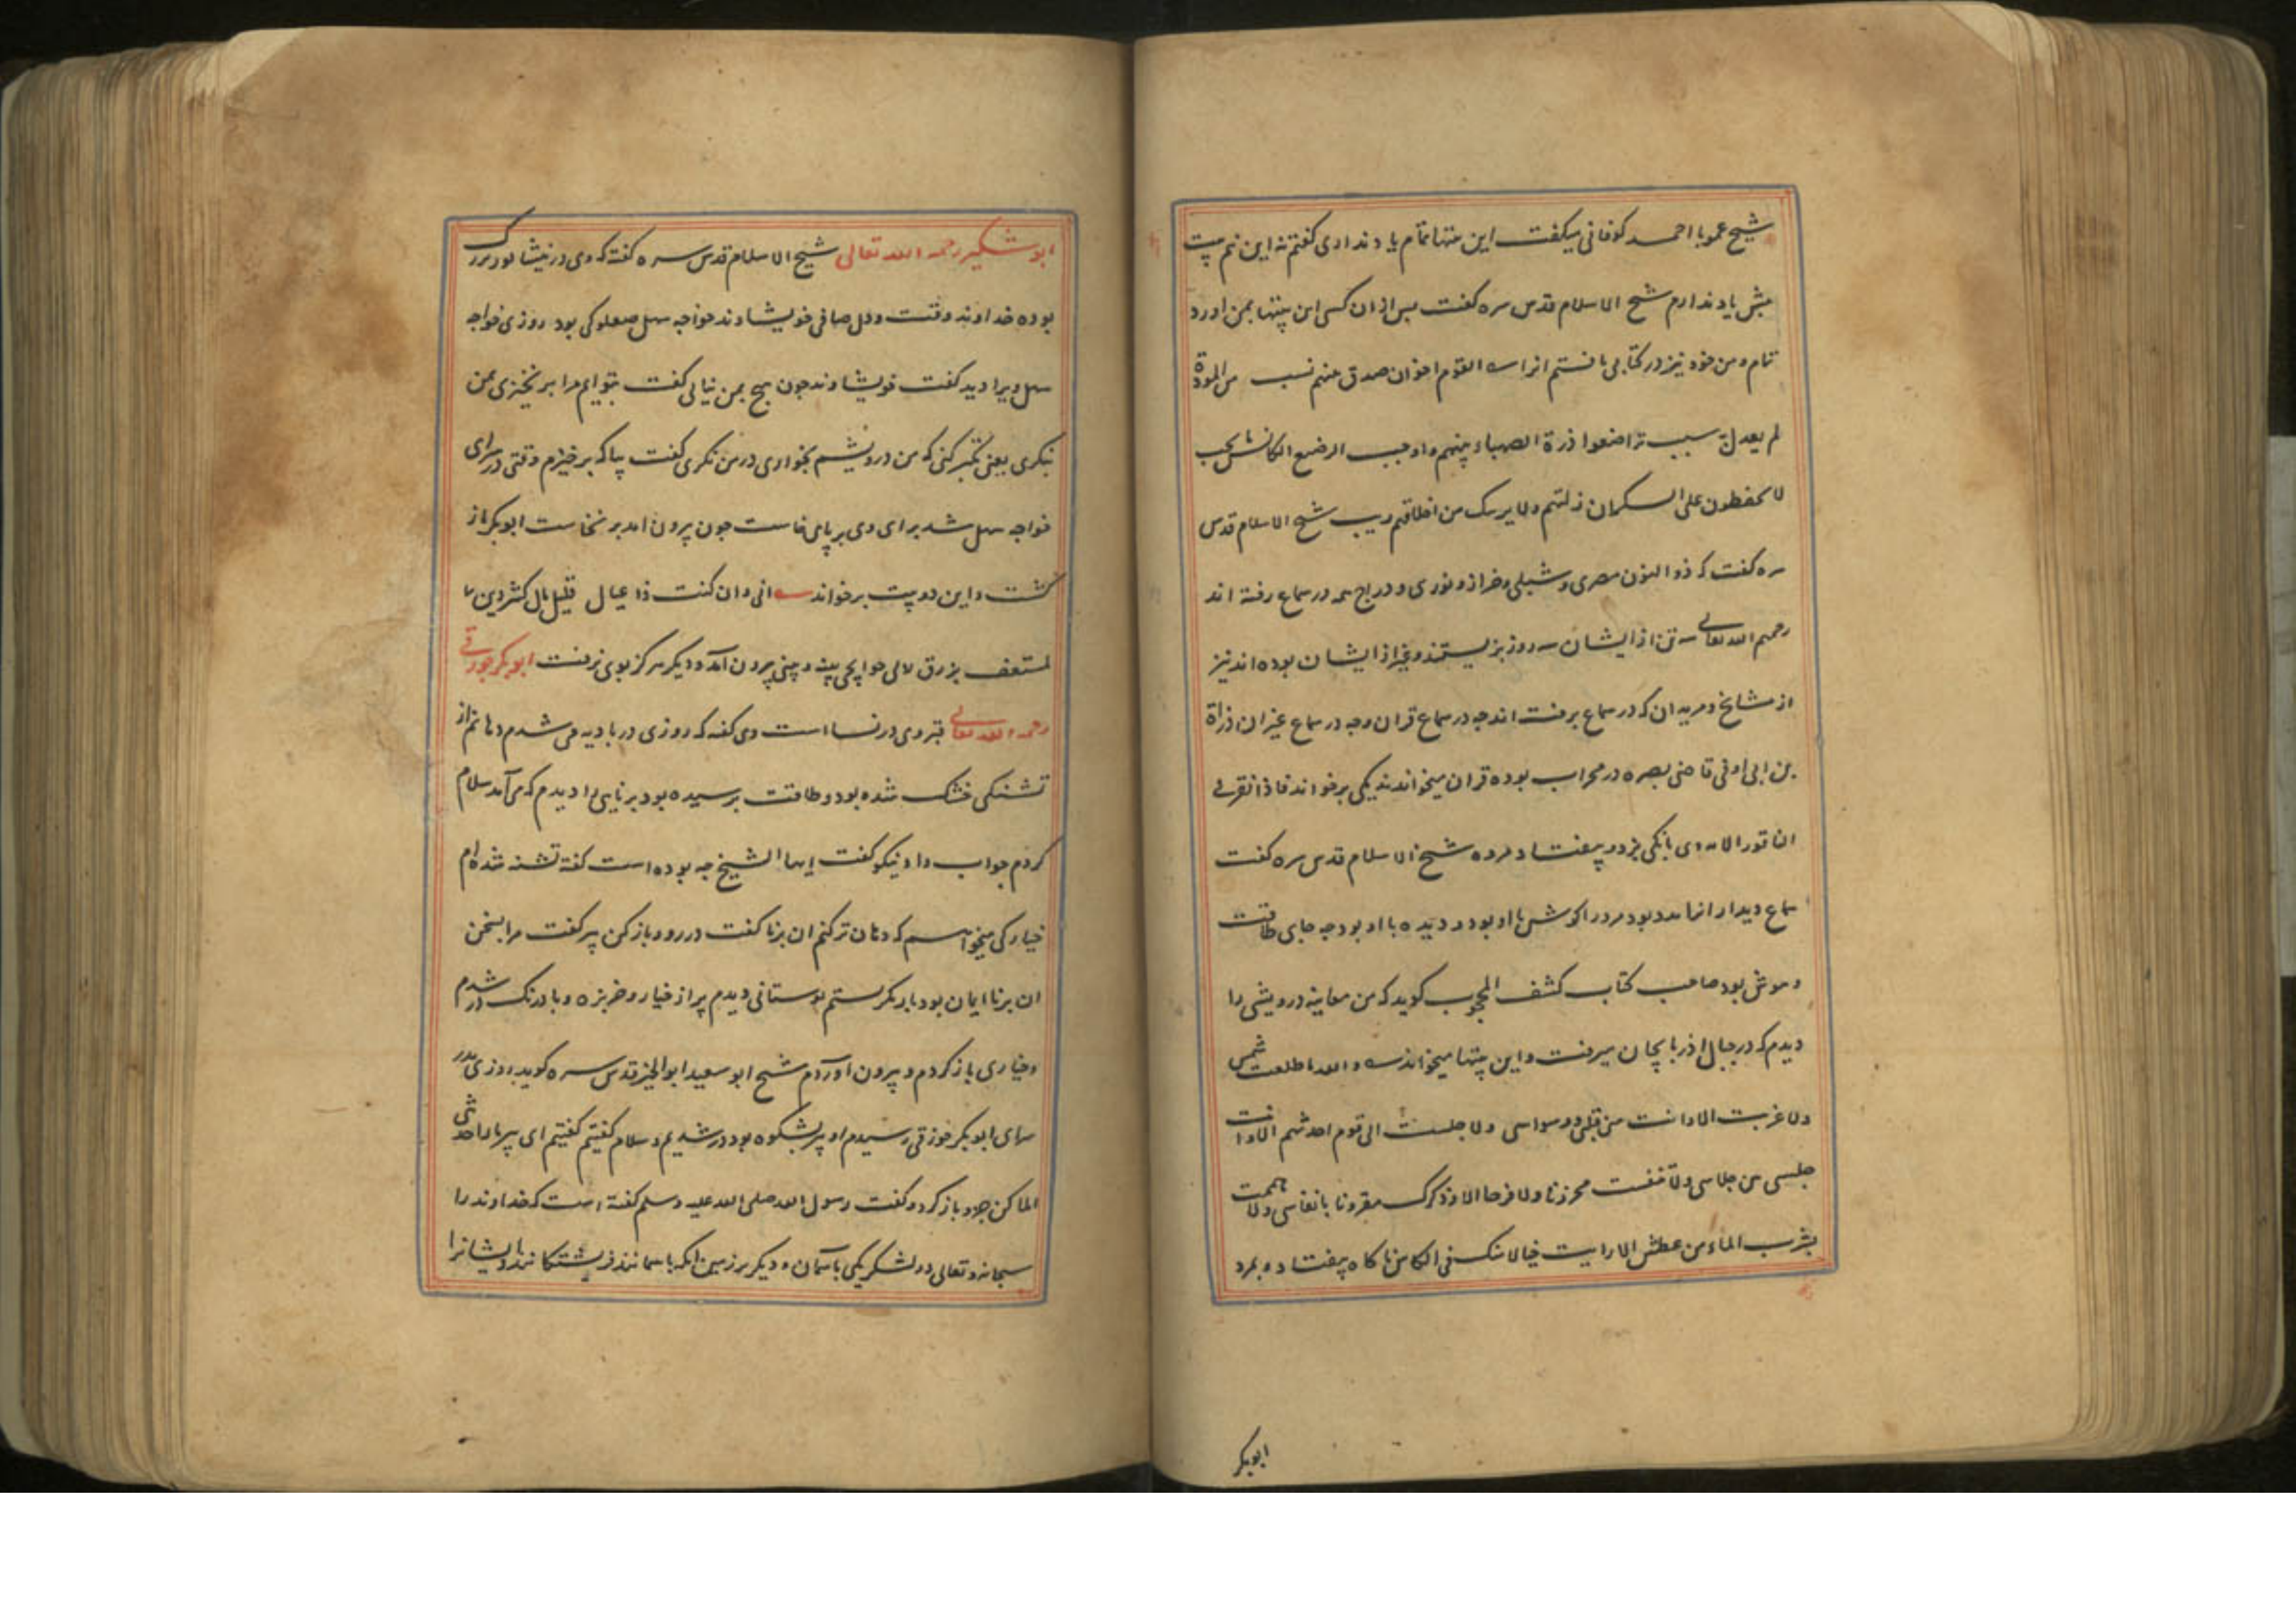 شیخ عمو با احمد کوفانی میکفت این بیتها تمام یاد نداری کفتم نه این نیم بیت
بیش یاد ندارم شیخ الاسلام قدس سره کفت پس ازان کسی این بیتها بمن اورد
تمام و من خود نیز در کتابی یافتم انرا القوم اخوان صدق بینهم نسب من المودة
لم یعدل به سبب تراضعوا درة الصهباء بینهم و اوجب الرضیع الکاس ما یجب
لا یحفظون علی السکران زلتهم ولا یریبک من اخلاقهم ریب شیخ الاسلام قدس
سره کفت که ذو النون مصری و شبلی و خراز و نوری و دراج همه در سماع رفته اند
رحمهم الله تعالی سه تن از ایشان سه روز بزیستند و غیر از ایشان بوده اند نیز
از مشایخ و مریدان که در سماع برفت اند چه در سماع قران و چه در سماع غیر ان زرارة
بن ابی اوفی قاضی بصره در محراب بوده قران میخواندند یکی برخواند فاذا نقر فی
الناقور الا وی بانکی بزد و بیفتاد مرده شیخ الاسلام قدس سره کفت
سماع دیدار بود مرد را کوش با او بود و دیده با او بود چه جای طاقت
و هوش بود صاحب کتاب کشف المحجوب کوید که من معاینه درویشی را
دیدم که در جبال اذربایجان میرفت و این بیتها میخواند والله ما طلعت شمس
ولا غربت الا و انت من قلبی و وسواسی ولا جلست الی قوم احدثهم الا و انت
جلیسی من جلاسی ولا تنفست محزونا ولا فرحا الا و ذکرک مقرونا بانفاسی ولا هممت
بشرب الماء من عطش الا رایت خیالا منک فی الکاس ناکاه بیفتاد و بمرد
ابوبکر
ابو شکیر رحمه الله تعالی شیخ الاسلام قدس سره کفته که وی در نیشابور بزرک
بوده خداوند وقت و دل صافی خویشاوند خواجه سهل صعلوکی بود روزی خواجه
سهل ویرا دید کفت خویشاوند چون هیچ بمن نیایی کفت بتو ایم مرا بر نخیزی بمن
ننکری یعنی تکبر کنی که من درویشم بخواری در من نکری کفت بیا که برخیزم وقتی در سرای
خواجه سهل شد برای وی بر پای خاست چون بیرون امد بر نخاست ابوبکر باز
کشت و این دو بیت برخواند انی و ان کنت ذا عیال قلیل مال کثیر دین
لمستعف برزق لالی حوایجی بینه و بینی بیرون آمد و دیکر هرکز بوی نرفت ابوبکر جوزقی
رحمه الله تعالی قبر وی در نسا است وی کفته که روزی در بادیه می شدم دهانم از
تشنکی خشک شده بود و طاقت برسیده بود برنایی را دیدم که می آمد سلام
کردم جواب داد نیکو کفت ایها الشیخ چه بوده است کفته تشنه شده ام
خیارکی میخواهم که دهان تر کنم ان برنا کفت در رو و باز کن پیر کفت مرا بسخن
ان برنا ایمان بود باز نکرستم بوستانی دیدم پر از خیار و خربزه و بادرنک در شدم
و خیاری باز کردم و بیرون آوردم شیخ ابو سعید ابو الخیر قدس سره کوید روزی بدر
سرای ابوبکر جوزقی رسیدم او پیر بشکوه بود در شدیم و سلام کفتیم کفتیم ای پیر ما را حدیثی
املا کن جزو باز کرد و کفت رسول الله صلی الله علیه وسلم کفته است که خداوند را
سبحانه و تعالی دو لشکر یکی باسمان و دیکر بر زمین انکه باسمانند فرشتکانند و ایشانرا